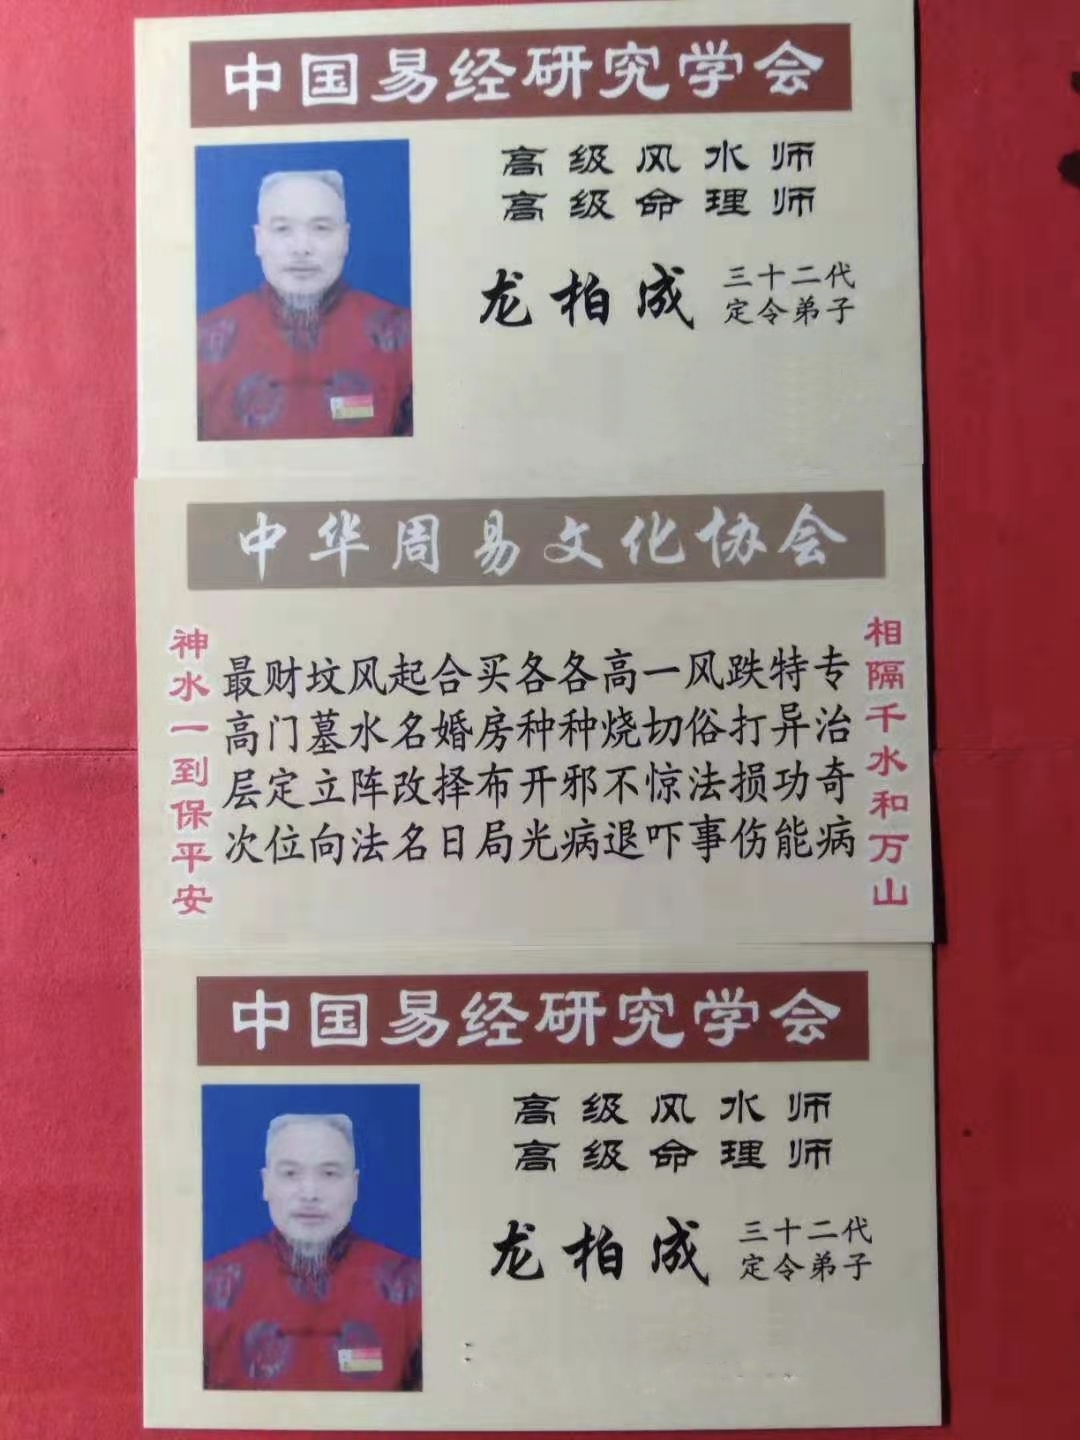 中国易经研究学会
高级风水师
高级命理师
龙柏成
三十二代
定令弟子
中华周易文化协会
相隔千水和万山
专治奇病
特异功能
跌打损伤
风俗法事
一切惊吓
高烧不退
各种邪病
各种开光
买房布局
合婚择日
起名改名
风水阵法
坟墓立向
财门定位
最高层次
神水一到保平安
中国易经研究学会
高级风水师
高级命理师
龙柏成
三十二代
定令弟子